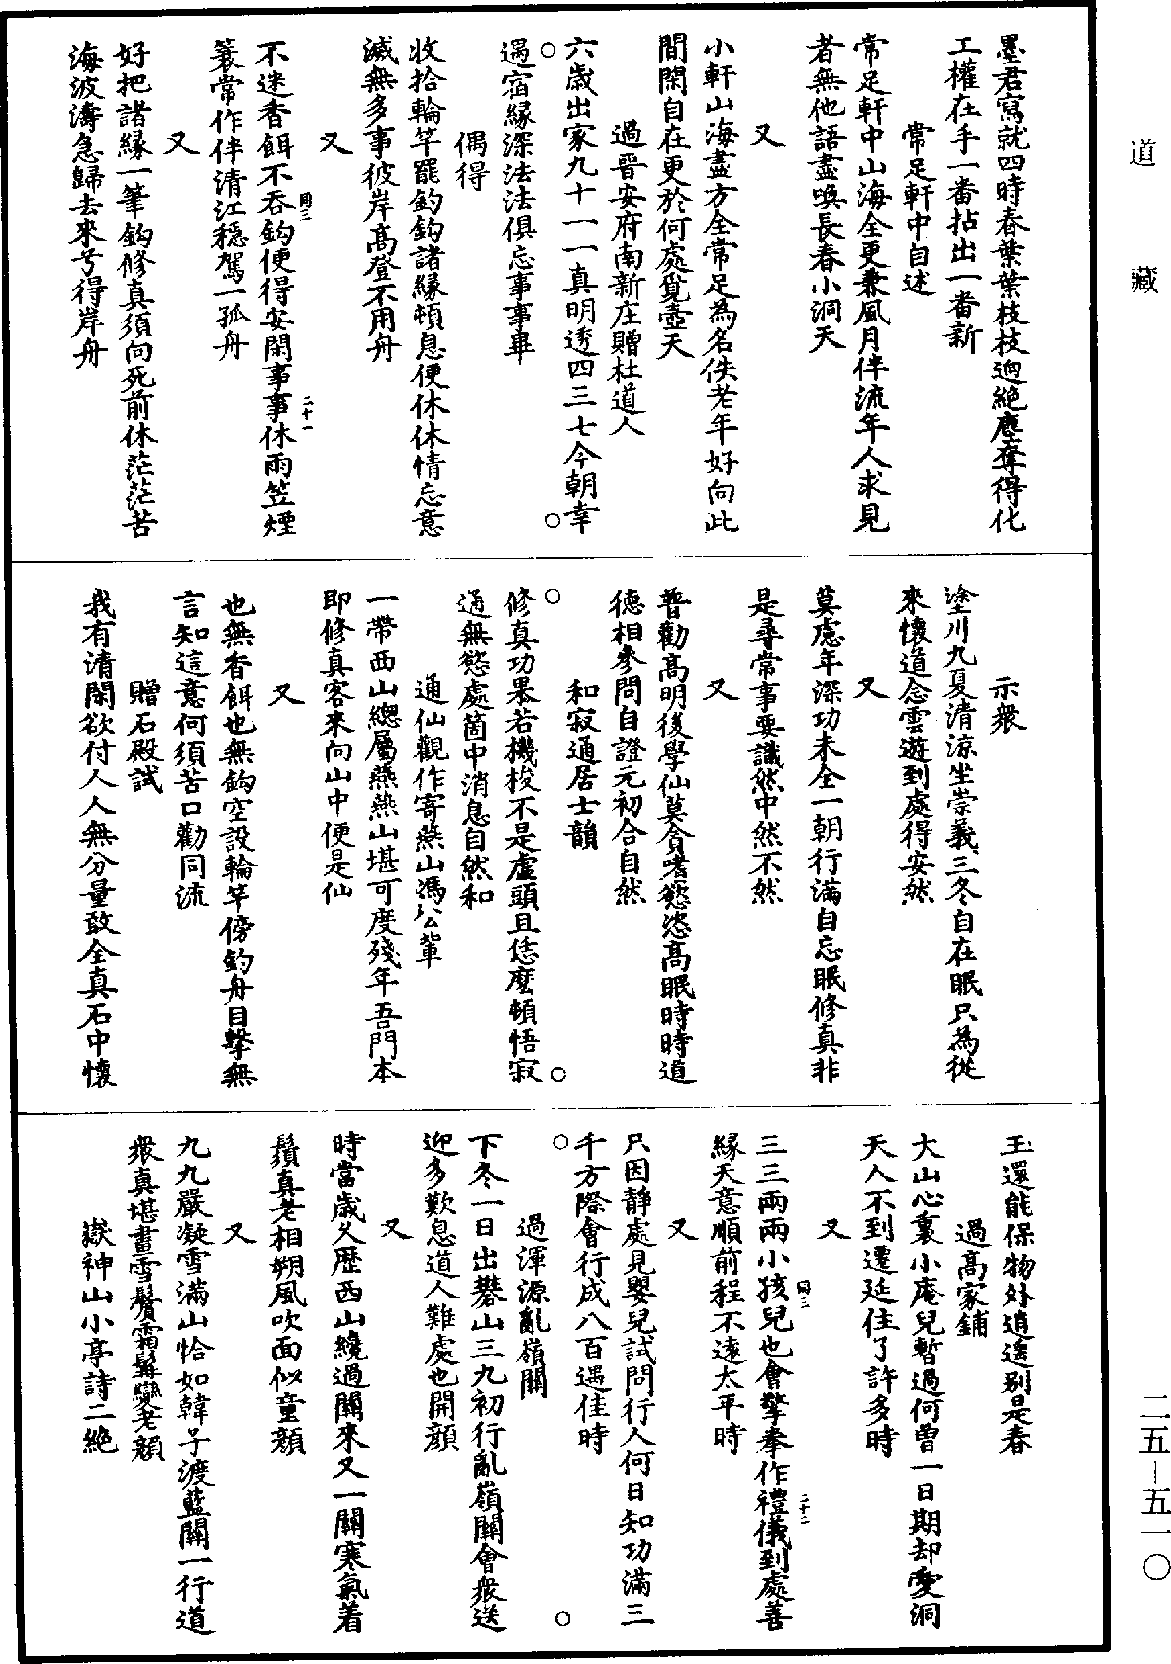 道藏
二五—五一〇
墨君寫就四時春葉葉枝枝迥絶塵奪得化
工權在手一番拈出一番新
常足軒中自述
常足軒中山海全更兼風月伴流年人求見
者無他語盡喚長春小洞天
又
小軒山海盡方全常足為名佚老年好向此
間閑自在更於何處覓壺天
過晉安府南新庄贈杜道人
六歲出家九十一一真明透四三七今朝幸
遇宿緣深法法俱忘事事畢
偶得
收拾輪竿罷釣鈎諸緣頓息便休休情忘意
滅無多事彼岸高登不用舟
又
不迷香餌不吞鈎便得安閑事事休雨笠煙
簑常作伴清江穩駕一孤舟
又
好把諸緣一筆鈎修真須向死前休茫茫苦
海波濤急歸去來兮得岸舟
示衆
塗川九夏清涼坐崇義三冬自在眠只為從
來懷道念雲遊到處得安然
又
莫慮年深功未全一朝行滿自忘眠修真非
是尋常事要識然中然不然
又
普勸高明後學仙莫貪嗜慾恣高眠時時道
德相參問自證元初合自然
和寂通居士韻
修真功果若機梭不是虛頭且恁麼頓悟寂
通無慾處箇中消息自然和
通仙觀作寄燕山馮公輩
一帶西山總屬燕燕山堪可度殘年吾門本
即修真客來向山中便是仙
又
也無香餌也無鈎空設輪竿傍釣舟目擊無
言知這意何須苦口勸同流
贈石殿試
我有清閑欲付人人無分量敢全真石中懷
玉還能保物外逍遙别是春
過高家鋪
大山心裏小庵兒暫過何曾一日期却愛洞
天人不到遷延住了許多時
又
三三兩兩小孩兒也會擎拳作禮儀到處善
緣天意順前程不遠太平時
又
只因靜處見嬰兒試問行人何日知功滿三
千方際會行成八百遇佳時
過渾源亂嶺關
下冬一日出礬山三九初行亂嶺關會衆送
迎多歎息道人難處也開顔
又
時當歲久歷西山纔過關來又一關寒氣着
鬚真老相朔風吹面似童顔
又
九九嚴凝雪滿山恰如韓子渡藍關一行道
衆真堪畫雪鬢霜髯變老顔
嶽神山小亭詩二絶